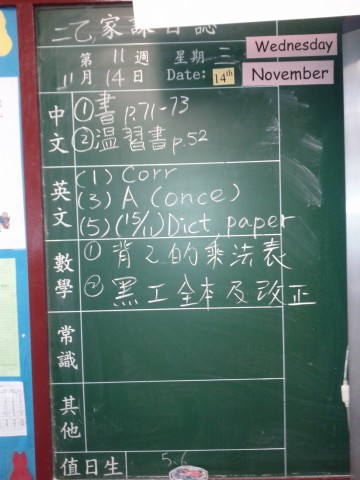 二乙家課日誌
第11週 星期三 Wednesday
11月14日 Date: 14th November
中文 ①書p.71-73
②温習書p.52
英文 (1) Corr
(3) A (once)
(5) (15/11) Dict paper
數學 ① 背2的乘法表
② 黑工全本及改正
常識
其他
值日生 5,6